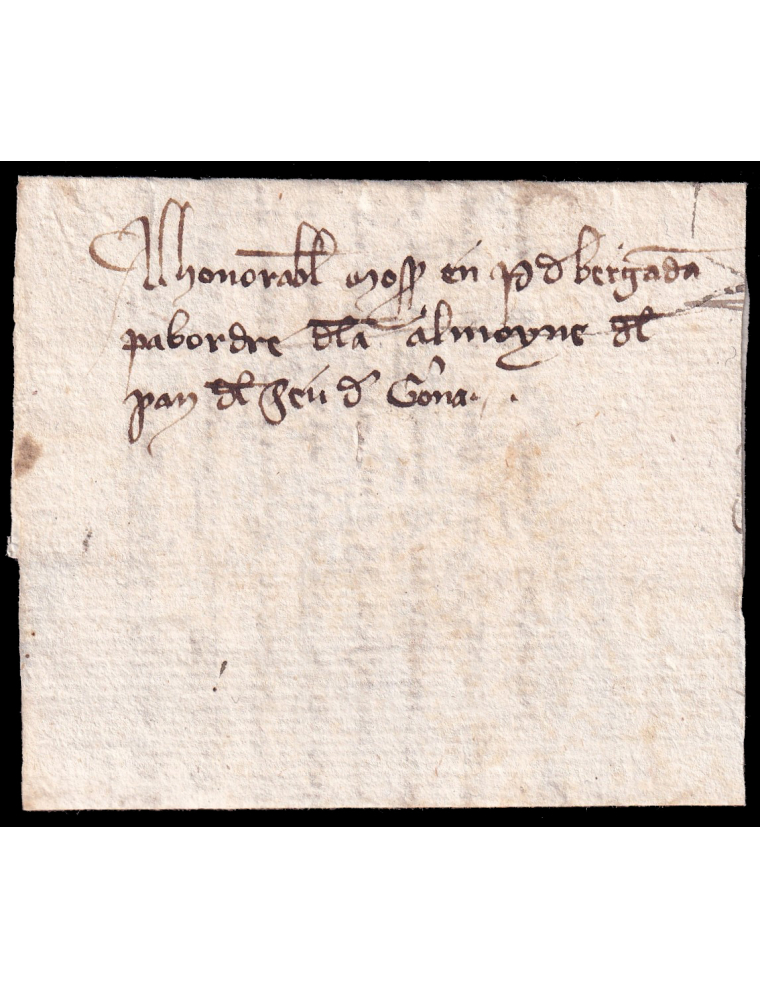 Al honorabl moss en P d bergada
pabordre dla almoyne dl
pan dl Seu d Gona